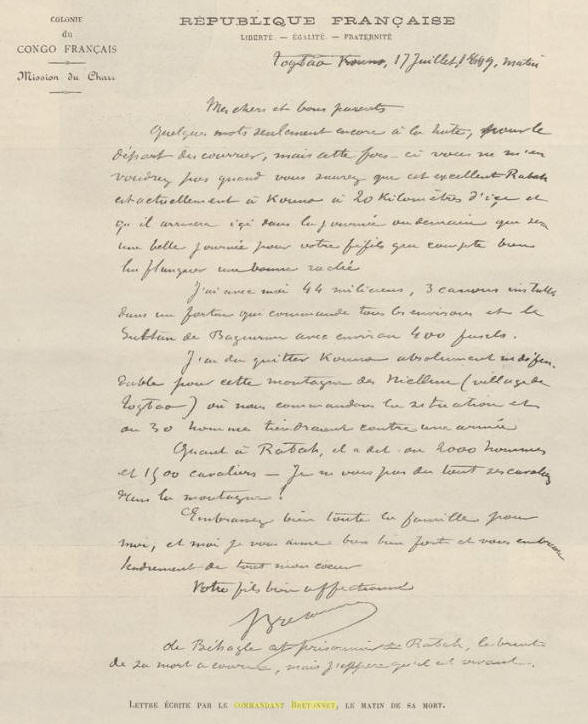 COLONIE
du
CONGO FRANÇAIS
Mission du Chari
RÉPUBLIQUE FRANÇAISE
LIBERTÉ — ÉGALITÉ — FRATERNITÉ
Togbao Kouno, 17 Juillet 1899, matin
Mes chers et bons parents
Quelques mots seulement encore à la hâte, pour le
départ des courrier, mais cette fois-ci vous ne m'en
voudrez pas quand vous saurez que cet excellent Rabah
est actuellement à Kouno à 20 Kilomètres d'ici et
qu'il arrivera ici dans la journée ou demain que sera
une belle journée pour votre fifils qui compte bien
lui flanquer une bonne raclée
J'ai avec moi 44 miliciens, 3 canons installés
dans un fortin qui commande tous les environs et le
Sultan de Baguirmi avec environ 400 fusils.
J'ai du quitter Kouno absolument indéfen-
dable pour cette montagne des Niellim (village de
Togbao) où nous commandons la situation et
où 30 hommes tiendraient contre une armée
Quant à Rabah, il a dit-on 2000 hommes
et 1500 cavaliers — Je ne vous pas du tout ses cavaliers
dans la montagne!
Embrassez bien toute la famille pour
moi, et moi je vous aime bien bien fort et vous embrasse
tendrement de tout mon cœur
Votre fils bien affectionné
de Béhagle est prisonnier de Rabah, le bruit
de sa mort a couru, mais j'espère qu'il est vivant.
LETTRE ÉCRITE PAR LE COMMANDANT BRETONNET, LE MATIN DE SA MORT.